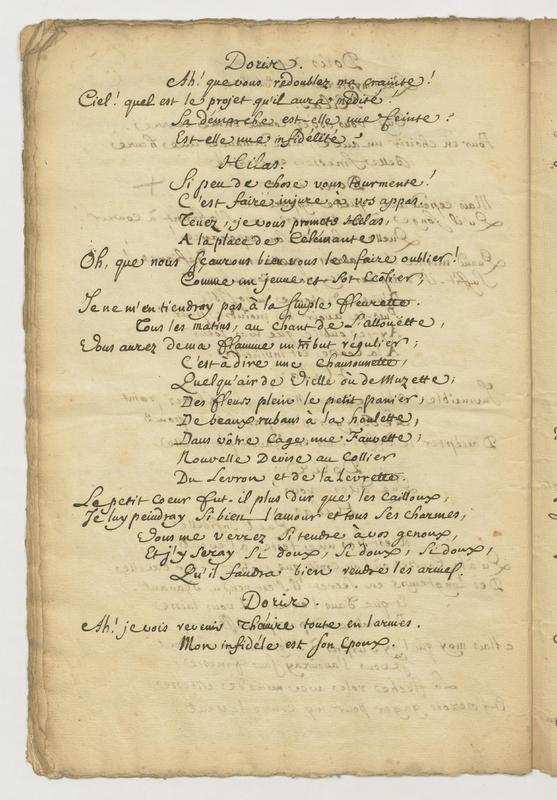 Doris.
Ah! que vous redoublez ma crainte!
Ciel! quel est le projet qu'il aura médité!
Sa démarche est-elle une feinte?
Est-elle une infidélité?
Hilas.
Si peu de chose vous tourmente!
C'est faire injure à vos appas.
Tenez, je vous promets Hilas,
A la place de Celimante.
Oh, que nous sçaurons bien vous le faire oublier!
Comme un jeune et sot Ecolier,
Je ne m'en tiendray pas à la simple fleurette.
Tous les matins, au chant de l'allouëtte,
Vous aurez de ma flamme un tribut régulier;
C'est à dire une chansonnette,
Quelqu'air de Vielle où de Muzette;
Des fleurs plein le petit panier,
De beaux rubans à la houlette,
Dans vôtre Cage, une Fauvette;
Nouvelle Devise au Collier
Du Levron et de la Levrette.
Le petit coeur fut-il plus dur que les cailloux,
Je luy peindray si bien l'amour et tous ses charmes,
Vous me verrez si tendre à vos genoux,
Et j'y seray si doux, si doux, si doux,
Qu'il faudra bien rendre les armes.
Doris.
Ah! je vois revenir Thémire toute en larmes.
Mon infidéle est son Epoux.